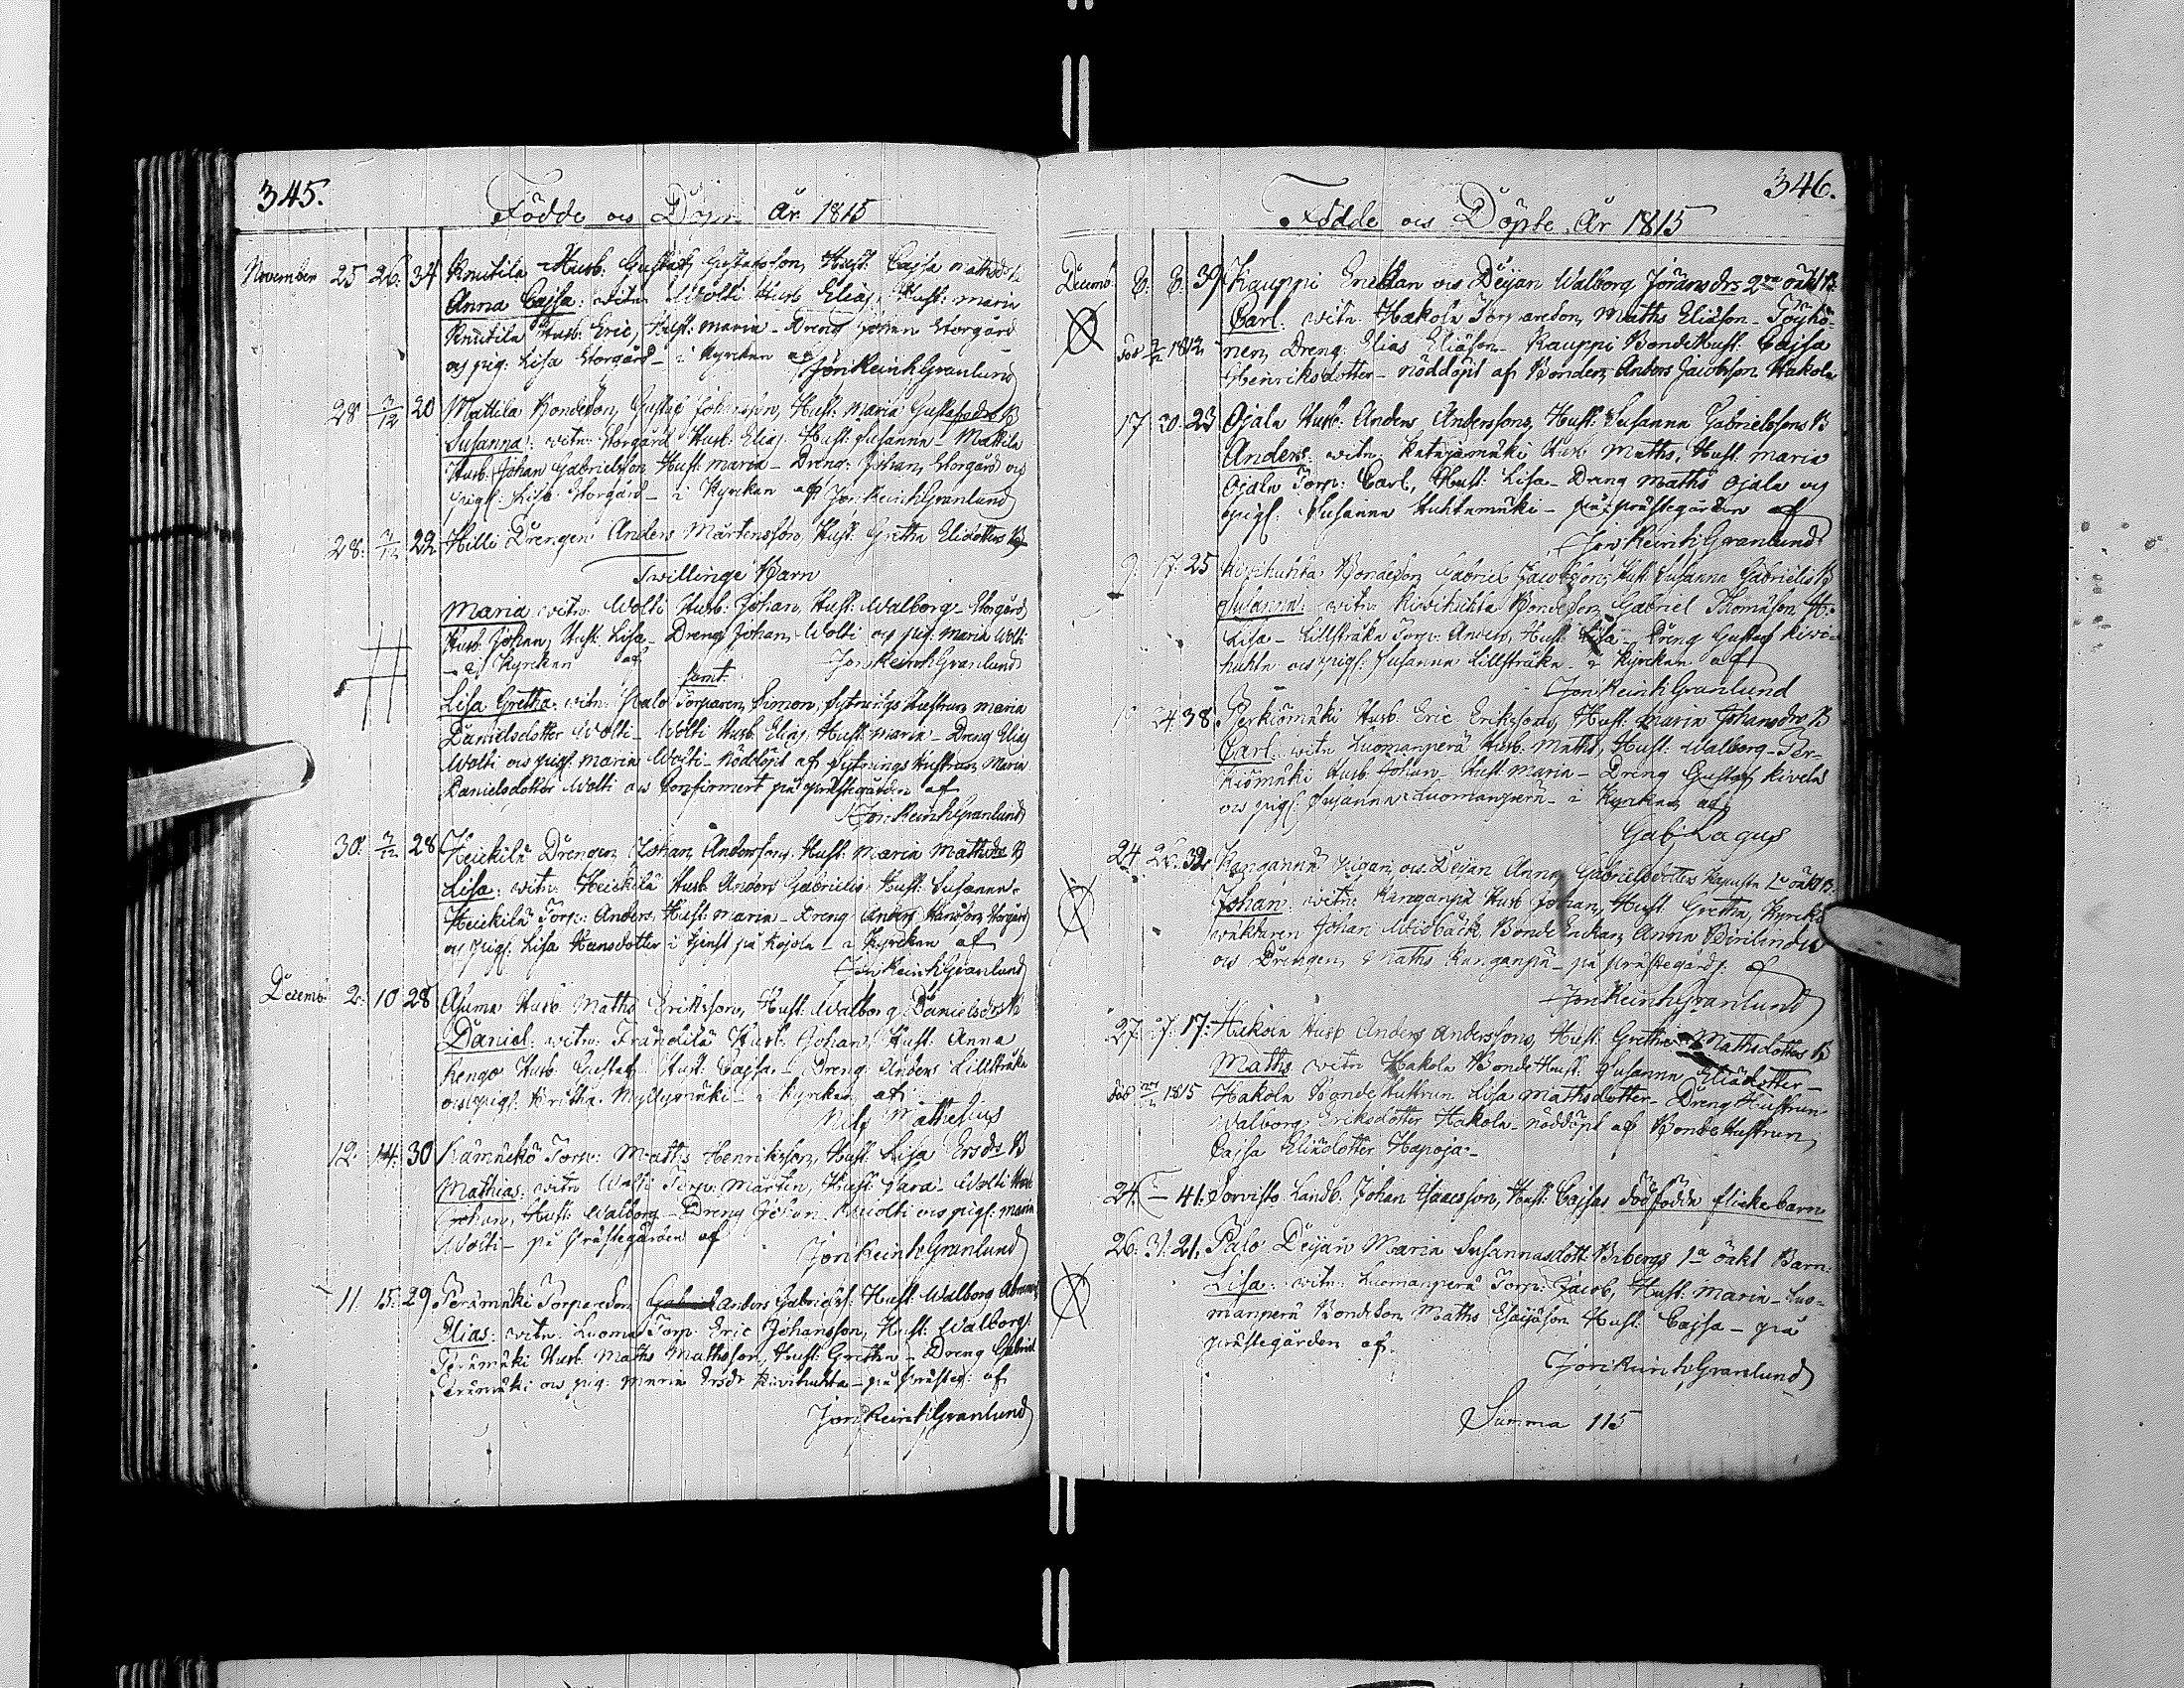 345.
Födde och Döpte År 1815
November 25 26. 34 Knutila Husb: Gustaf Gustafsson, Hust: Cajsa Mathsdr B
Anna Cajsa: witn: Wolti Husb Elias, Hust: Maria
Knutila Husb. Eric, Hust: Maria - Dreng Johan Storgård
och pig: Lisa Storgård - i Kyrckan af Jon Reinh Granlund
28 3/12 20 Mattila Bondeson, Gustaf Johansson, Hust: Maria Gustafsdr B
Susanna: witn: Storgård Husb: Elias, Hust: Susanna - Mattila
Husb: Johan Gabrielsson, Hust: Maria - Dreng: Johan Storgård och
pigs: Lisa Storgård - i Kyrckan af Jon Reinh Granlund
28. 3/12 22 Hilli Drengen Anders Mårtensson, Hust: Gretha Eliedotters B
Twillinge Barn
Maria witn: Wolti Husb: Johan, Hust: Walborg - Storgård
Husb Johan, Hust: Lisa - Dreng Johan Wolti och pig: Maria Wolti
- i Kyrckan af Jon Reinh Granlund
samt.
Lisa Gretha: witn: Palo Torparen Simon, Hustrun Maria
Danielsdotter Wolti - Wolti Husb Elias, Hust: Maria - Dreng Elias
Wolti och pigs: Maria Wolti - Nöddöpt af Hustrun Maria
Danielsdotter Wolti och Confirmert på prästegården af
Jon Reinh Granlund
30. 3/12 28 Heickilä Drengen Johan Andersson, Hust: Maria Mathsdr B
Lisa: witn: Heickilä Husb Anders Gabrielis Hust: Susanna -
Heickilä Torp: Anders, Hust: Maria - Dreng Anders Hansson Storgård
och pigs: Lisa Hansdotter i tjenst på Kojola - i Kyrckan af
Jon Reinh Granlund
Decemb: 2. 10 28 Asuma Husb Maths Eriksson, Hust: Walborg Danielsdr B
Daniel: witn: Frändilä Husb. Johan, Hust: Anna
Kengo Husb. Gustaf Hust: Cajsa - Dreng Anders Lillsträka
och pigs: Brita Myllymäki - i Kyrckan af
Nils Mathesius
12. 14: 30 Kämnekö Torp: Maths Henriksson, Hust: Lisa Ersdr B
Mathias: witn: Wolti Torp: Mårten, Hust: Sara - Wolti Husb
Johan, Hust: Walborg - Dreng Johan Wolti och pigs: Maria
Wolti - på Prästegården af
Jon Reinh Granlund
11 15. 29 Perämäki Torpareson Anders Gabriels: Hust: Walborg
Elias: witn: Luoma Torp: Eric Johansson, Hust: Walborg:
Perämäki Husb. Maths Mathsson, Hust: Gretha - Dreng Gabriel
Perämäki och pig: Maria Ersdr Kivihuhta - på prästeg: af
Jon Reinh Granlund
346.
Födde och Döpte År 1815
Decemb: 8: 8: 39 Kauppi Enckan och Deijan Walborg Jöransdrs 2:ra oäkt B:
Carl: witn: Hakola Torpareson, Maths Eliäson - Töyhö-
nen, Dreng: Elias Eliäson - Kauppi Bondehust: Cajsa
Henriksdotter - nöddöpt af Bonden Anders Jacobsson Hakola
17. 30. 23 Ojala Husb: Anders Andersson, Hust: Susanna Gabrielssons B
Anders: witn: Katajamäki Husb Maths, Hust. Maria
Ojala Torp: Carl, Hust: Lisa - Dreng Maths Ojala och
pigs: Susanna Huhtamäki - på prästegården af
Jon Reinh Granlund
9. 17. 25 Kivihuhta Bondeson Gabriel Jacobsson, Hust: Susanna Gabrielis B
Susanna: witn: Kivihuhta Bondeson Gabriel Thomason H:
Lisa - Lillsträka Torp: Anders, Hust: Lisa - Dreng Gustaf Kivi-
huhta och pigs: Susanna Lillsträka - i Kyrckan af
Jon Reinh Granlund
24. 38 Perkiömäki Husb: Eric Eriksson, Hust: Maria Johansdr B
Carl: witn Luomanperä Husb. Maths, Hust: Walborg - Per-
kiömäki Husb. Johan - Hust: Maria - Dreng Gustaf Kivelä
och pigs: Susanna Luomanperä - i Kyrckan af
Gab: Lagus
24. 26. 32. Kanganpä pigan och Deijan Anna Gabrielsdotters 1:a oäkt B.
Johan: witn: Kanganpä Husb Johan, Hust: Gretha, Kyrcko
wäktaren Johan Widbäck, Bonde Enckan Anna
och Drengen Maths Kanganpä - på prästegård: af
Jon Reinh Granlund
27. 17: Hakola Husb Anders Andersson, Hust: Gretha Mathsdotters B
Maths witn Hakola BondeHust: Susanna Eliädotter -
1815 Hakola Bondehustrun Lisa Mathsdotter - Dreng Hustrun
Walborg Eriksdotter Hakola - nöddöpt af Bondehustrun
Cajsa Eliädotter Hapoja -
24. - 41: Sorvisto Landb. Johan Isacsson, Hust: Cajsas dödfödda flicke barn
26. 31. 21. Palo Deijan Maria Susannasdott: Brbergs 1:a oäkt Barn:
Lisa: witn: Luomanperä Torp: Jacob, Hust: Maria - Luo-
manperä Bondeson Maths Esaijäson Hust: Cajsa - på
prästegården af.
Jon Reinh Granlund
Summa 115